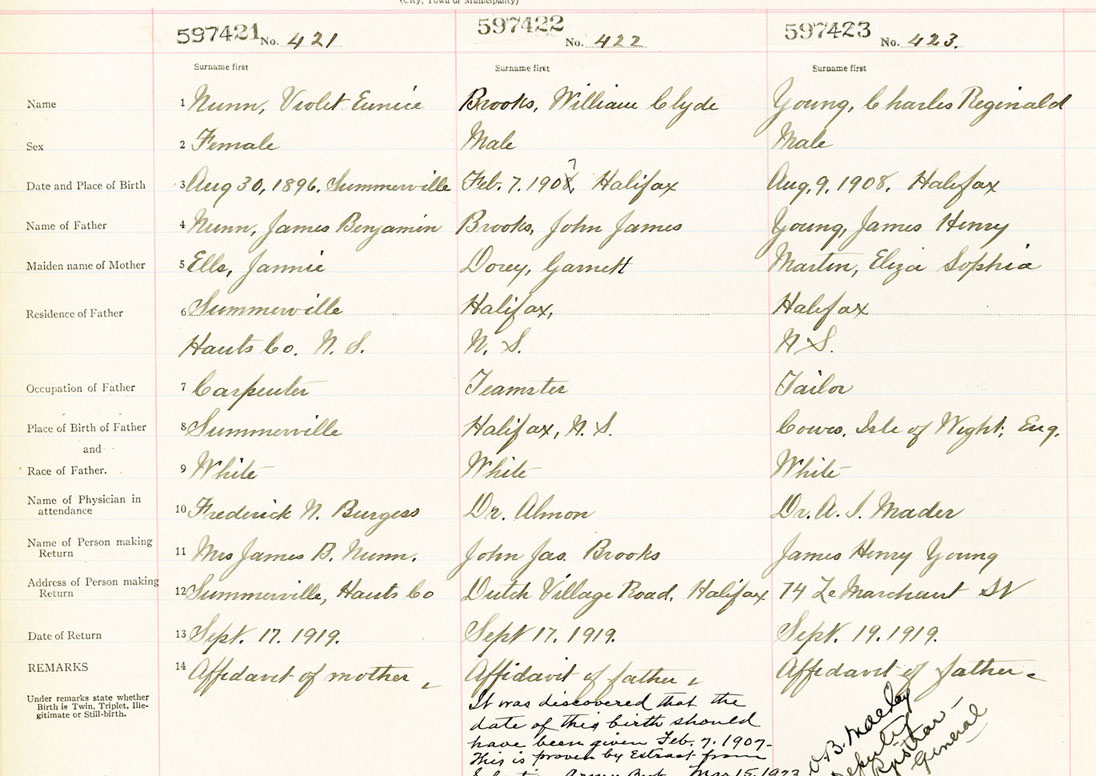 (City, Town or Municipality)
597421 No. 421
597422 No. 422
597423 No. 423.
Surname first Surname first Surname first
Name 1 Nunn, Violet Eunice Brooks, William Clyde Young, Charles Reginald
Sex 2 Female Male Male
7
Date and Place of Birth 3 Aug 30, 1896. Summerville Feb. 7. 1908, Halifax Aug, 9, 1908. Halifax
Name of Father 4 Nunn, James Benjamin Brooks, John James Young, James Henry
Maiden name of Mother 5 Ells, Jannie Dorey, Garnett Martin, Eliza Sophia
Residence of Father 6 Summerville Halifax, Halifax
Hants Co. N. S. N. S. N S.
Occupation of Father 7 Carpenter Teamster Tailor
Place of Birth of Father 8 Summerville Halifax, N. S. Cowes. Isle of Wight, Eng.
and
Race of Father. 9 White White White
Name of Physician in
attendance 10 Frederick N. Burgess Dr. Almon Dr. A. I. Mader
Name of Person making
Return 11 Mrs James B. Nunn. John Jas. Brooks James Henry Young
Address of Person making
Return 12 Summerville, Hants Co Dutch Village Road. Halifax 74 Le Marchant St
Date of Return 13 Sept. 17. 1919. Sept 17, 1919. Sept. 19. 1919.
REMARKS 14 Affidavit of mother Affidavit of father Affidavit of father
Under remarks state whether
Birth is Twin, Triplet, Ille-
gitimate or Still-birth.
It was discovered that the
date of this birth should
have been given Feb. 7. 1907-
This is proven by Extract from
Mar 15, 1923
Deputy
Registrar-
General